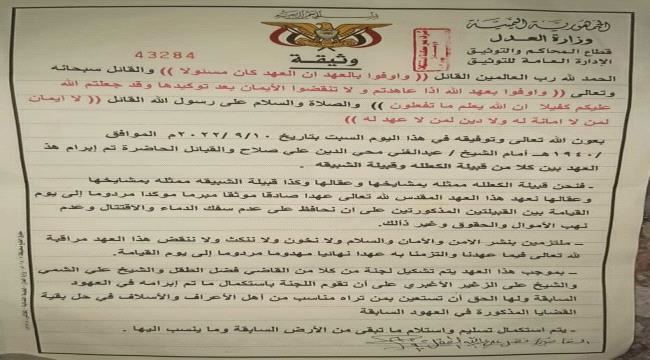 الجمهورية اليمنية
وزارة العدل
قطاع المحاكم والتوثيق
الإدارة العامة للتوثيق
وثيقة
43284
الحمد لله رب العالمين القائل (( واوفوا بالعهد ان العهد كان مسئولا )) والقائل سبحانه
وتعالى (( واوفوا بعهد الله اذا عاهدتم و لا تنقضوا الأيمان بعد توكيدها وقد جعلتم الله
عليكم كفيلا ان الله يعلم ما تفعلون )) والصلاة والسلام على رسول الله القائل (( لا ايمان
لمن لا امانة له ولا دين لمن لا عهد له ))
بعون الله تعالى وتوفيقه في هذا اليوم السبت بتاريخ ٢٠٢٢/٩/١٠م الموافق
/١٩٤٠هـ أمام الشيخ / عبدالغني محي الدين علي صلاح والقبائل الحاضرة تم إبرام هذ
العهد بين كلا من قبيلة الكعلله وقبيلة الشبيقه .
ـ فنحن قبيلة الكعلله ممثله بمشايخها وعقالها وكذا قبيلة الشبيقه ممثله بمشايخها
وعقالها نعهد هذا العهد المقدس لله تعالى عهدا صادقا موثقا مبرما موكدا مردوما إلى يوم
القيامة بين القبيلتين المذكورتين على ان نحافظ على عدم سفك الدماء والاقتتال وعدم
نهب الأموال والحقوق وغير ذالك.
ـ ملتزمين بنشر الامن والأمان والسلام ولا نخون ولا ننكث ولا ننقض هذا العهد مراقبة
لله تعالى فيما عهدنا والتزمنا به عهدا نهائيا مهدوما مردوما إلى يوم القيامة.
ـ بموجب هذا العهد يتم تشكيل لجنة من كلا من القاضي فضل الطقل والشيخ علي الشمي
والشيخ على الزغير الأغبري على أن تقوم اللجنة باستكمال ما تم إبرامه في العهود
السابقة ولها الحق أن تستعين بمن تراه مناسب من أهل الأعراف والأسلاف في حل بقية
القضايا المذكورة في العهود السابقة
ـ يتم استكمال تسليم واستلام ما تبقى من الأرض السابقة وما ينسب اليها .